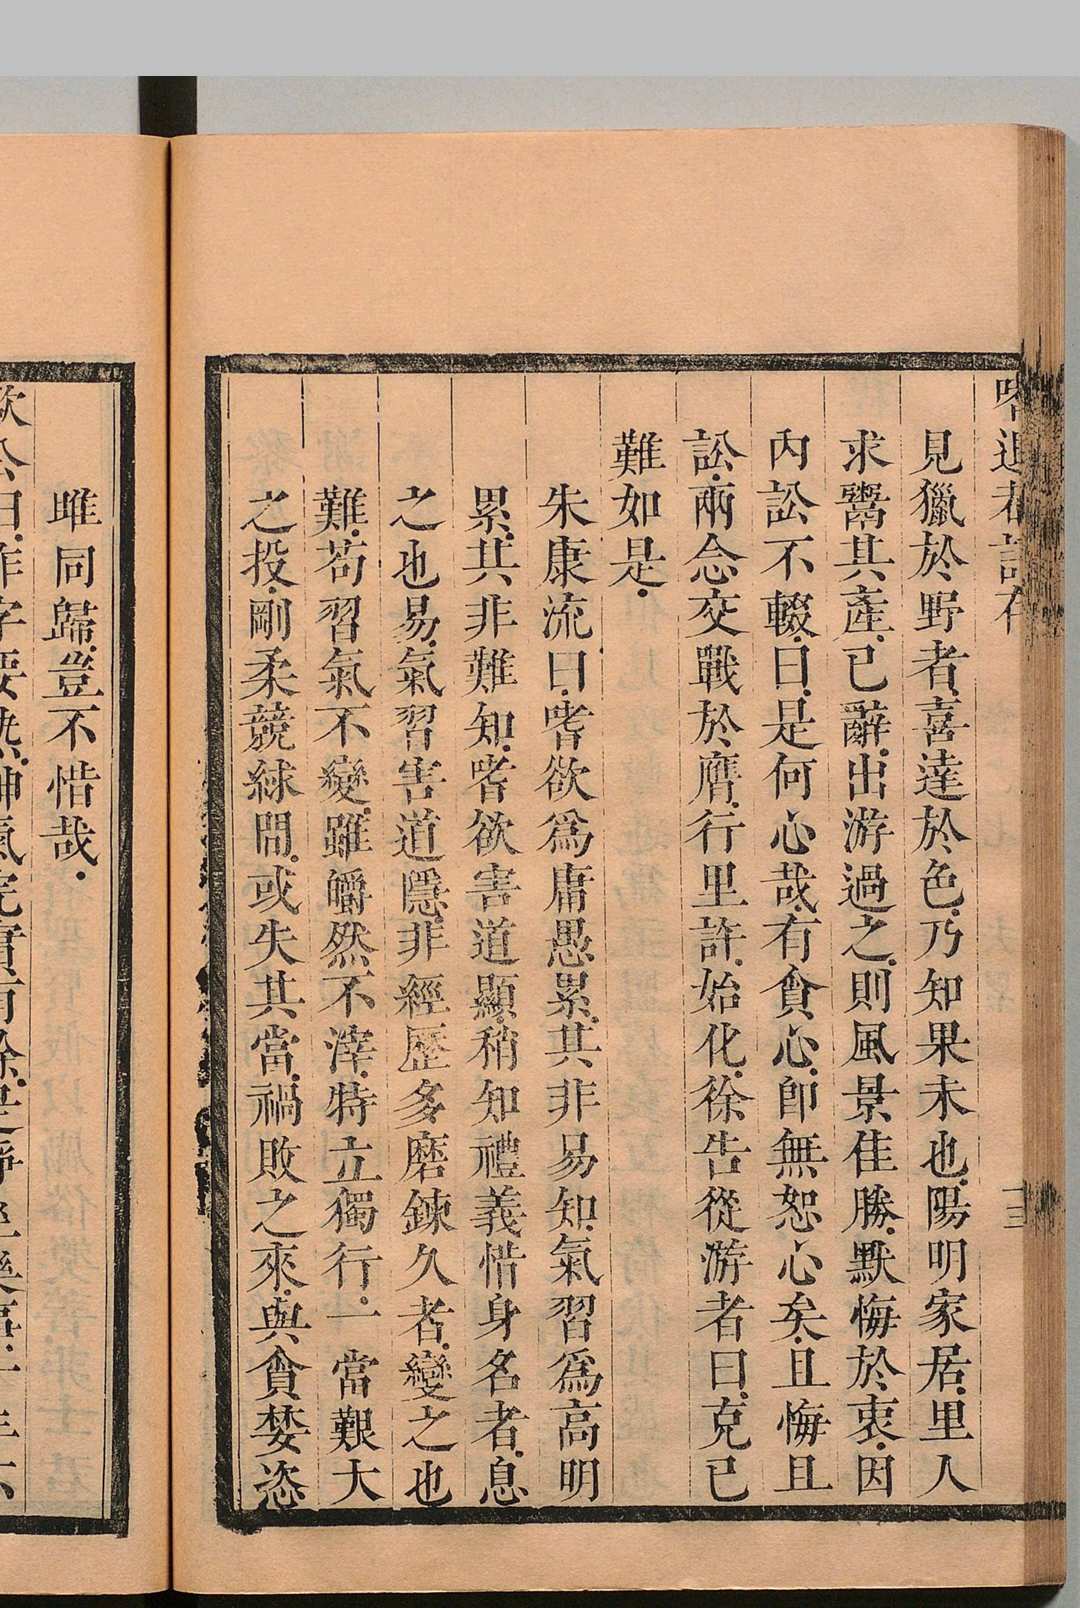 見獵於野者喜達於色乃知果未也陽明家居里人
求鬻其產已辭出游過之則風景佳勝默悔於衷因
內訟不輟曰是何心哉有貪心卽無恕心矣且悔且
訟兩念交戰於膺行里許始化徐告從游者曰克已
難如是
朱康流曰嗜欲爲庸愚累其非易知氣習爲高明
累其非難知嗜欲害道顯稍知禮義惜身名者息
之也易氣習害道隱非經歷多磨鍊久者變之也
難苟習氣不變雖皭然不滓特立獨行一當艱大
之投剛柔競絿間或失其當禍敗之來與貪婪恣
睢同歸豈不惜哉